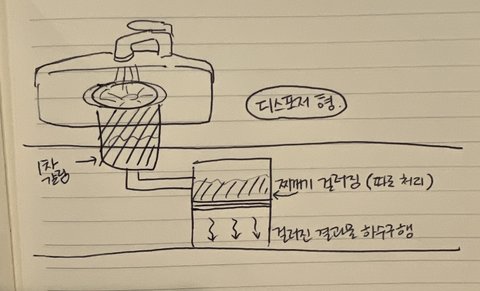 디스포저 형.
1차
갈갈
찌꺼기 걸러짐 (따로 처리)
걸러진 결과물 하수구행